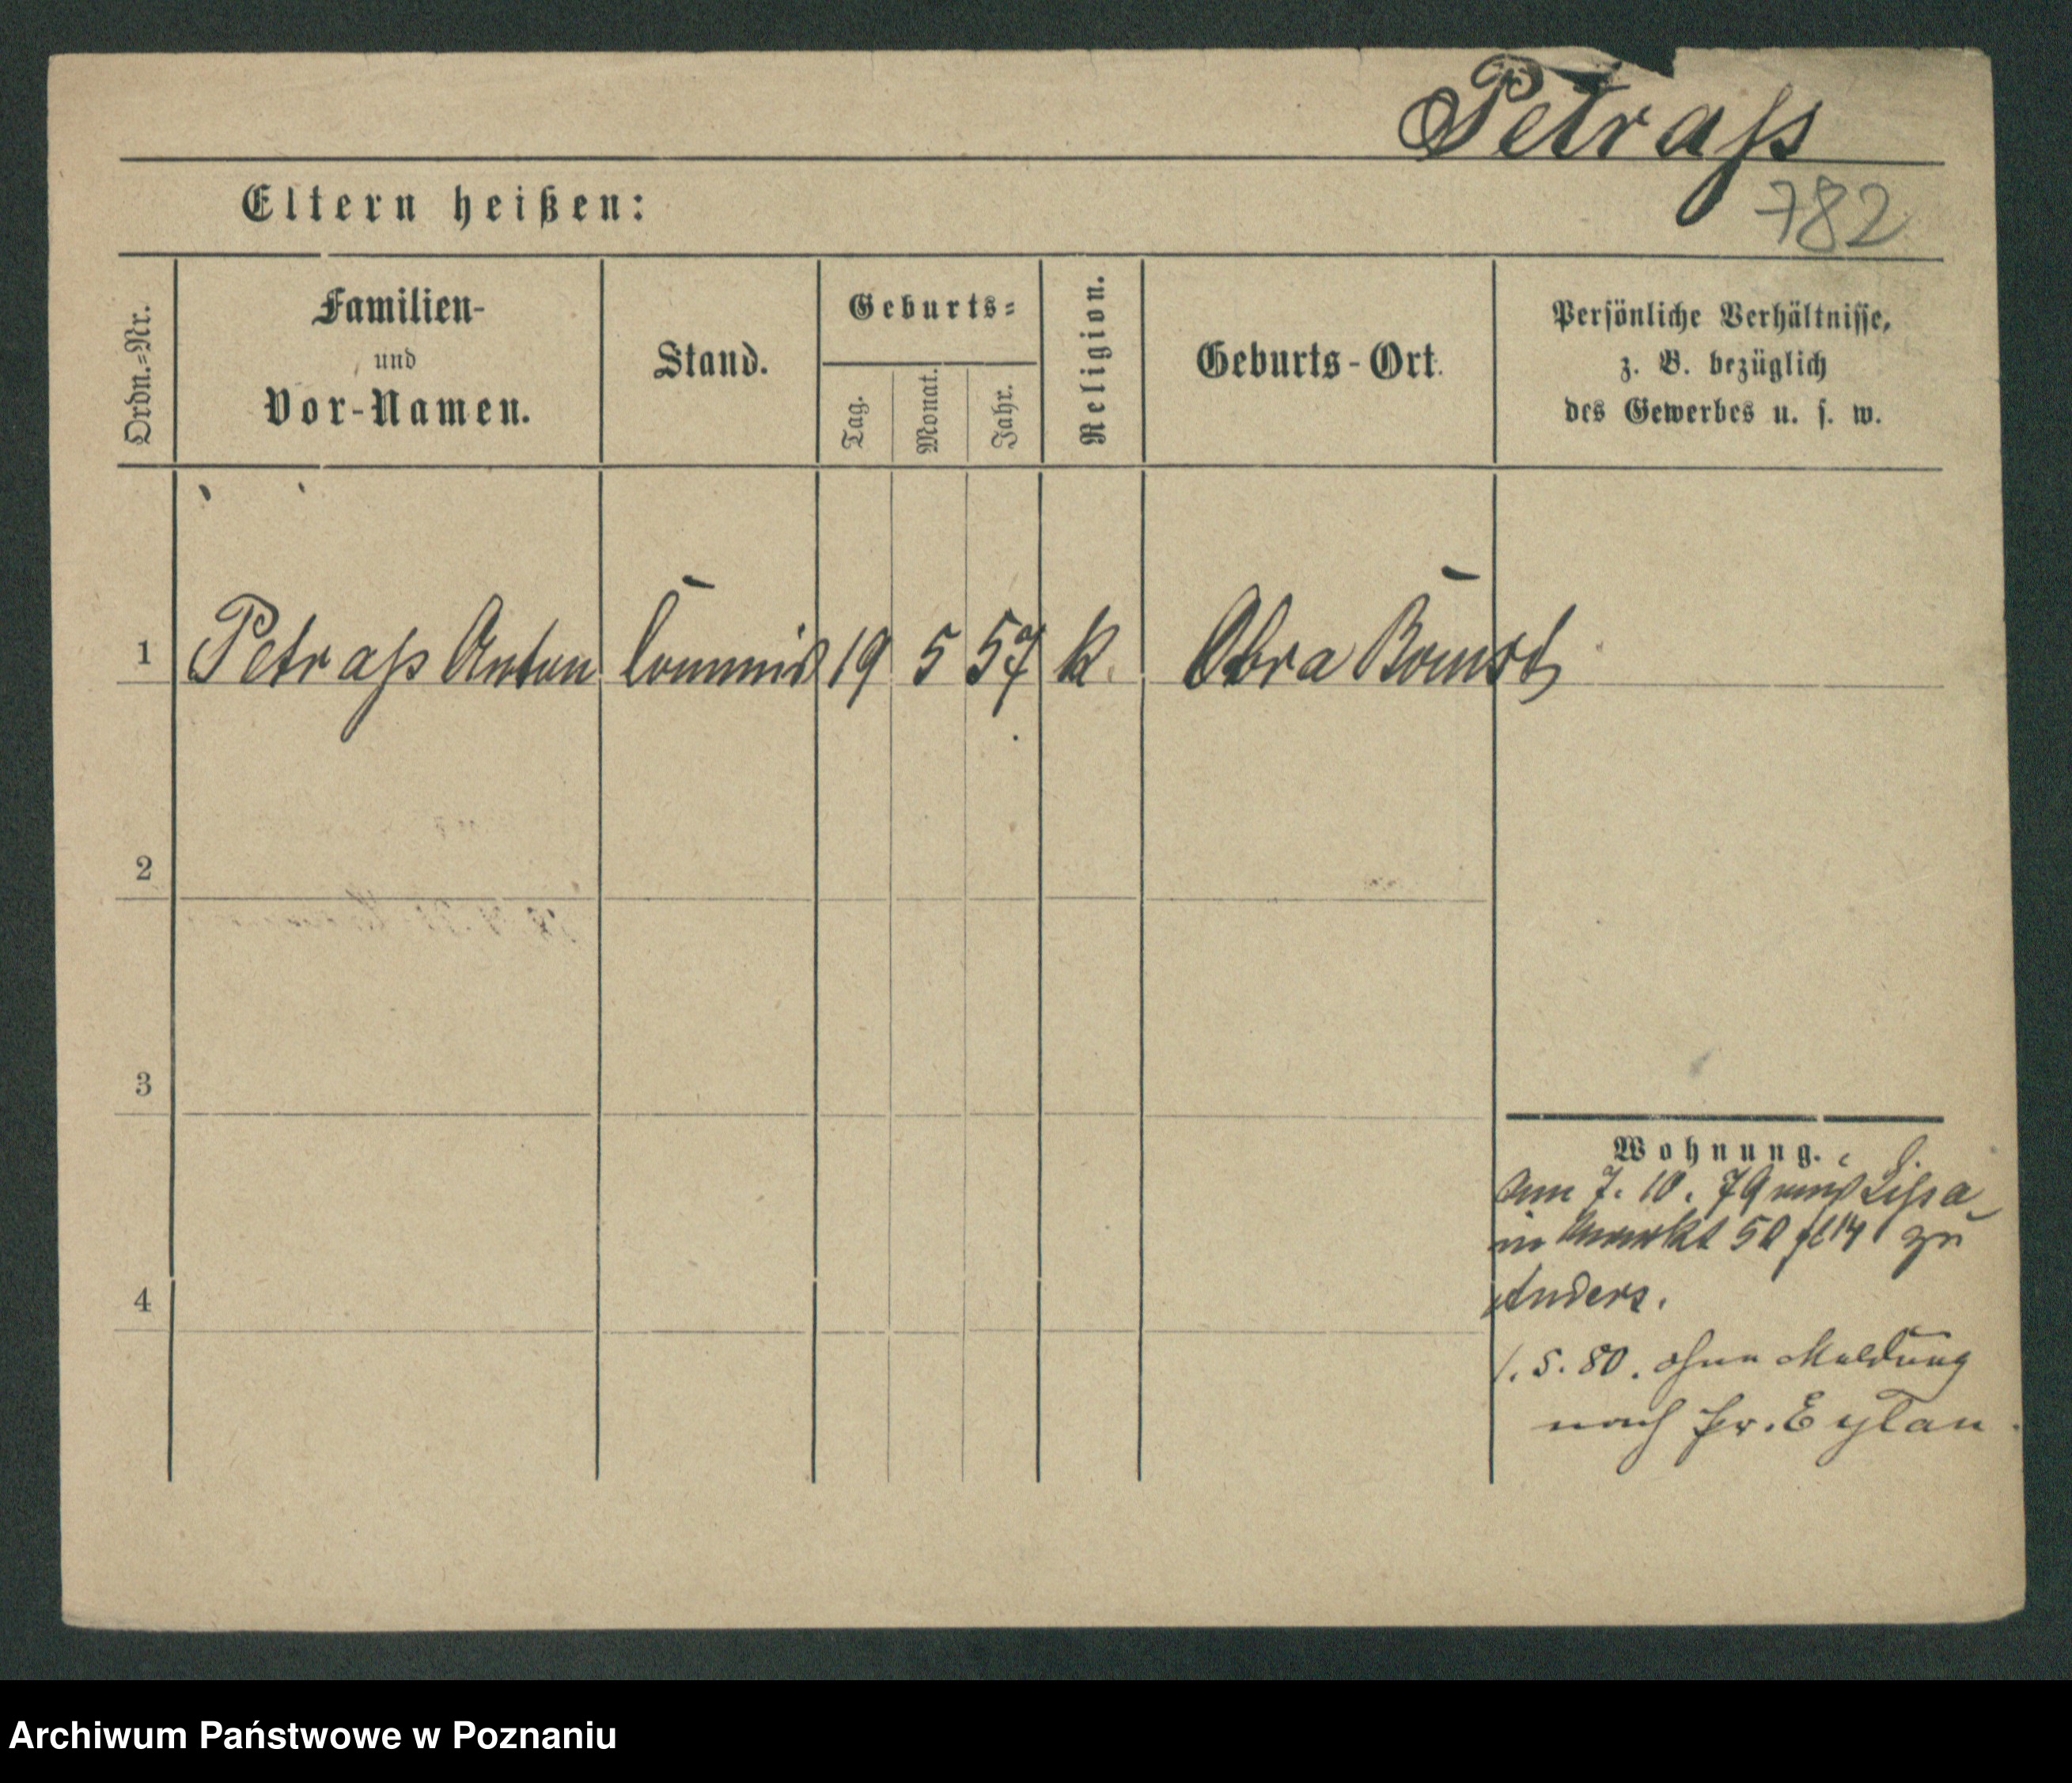 Petraß
782
Eltern heißen:
Ordn.=Nr.
Familien-
und
Vor-Namen.
Stand.
Geburts=
Tag.
Monat.
Jahr.
Religion.
Geburts-Ort.
Persönliche Verhältnisse,
z. B. bezüglich
des Gewerbes u. s. w.
1 Petraß Anton Commis 19 5 57 k. Obra Bomst
2
3
4
Wohnung.
7. 10. 79 Lissa
50 zu
Anders.
1. 5. 80. ohne Meldung
nach Pr. Eylau.
Archiwum Państwowe w Poznaniu